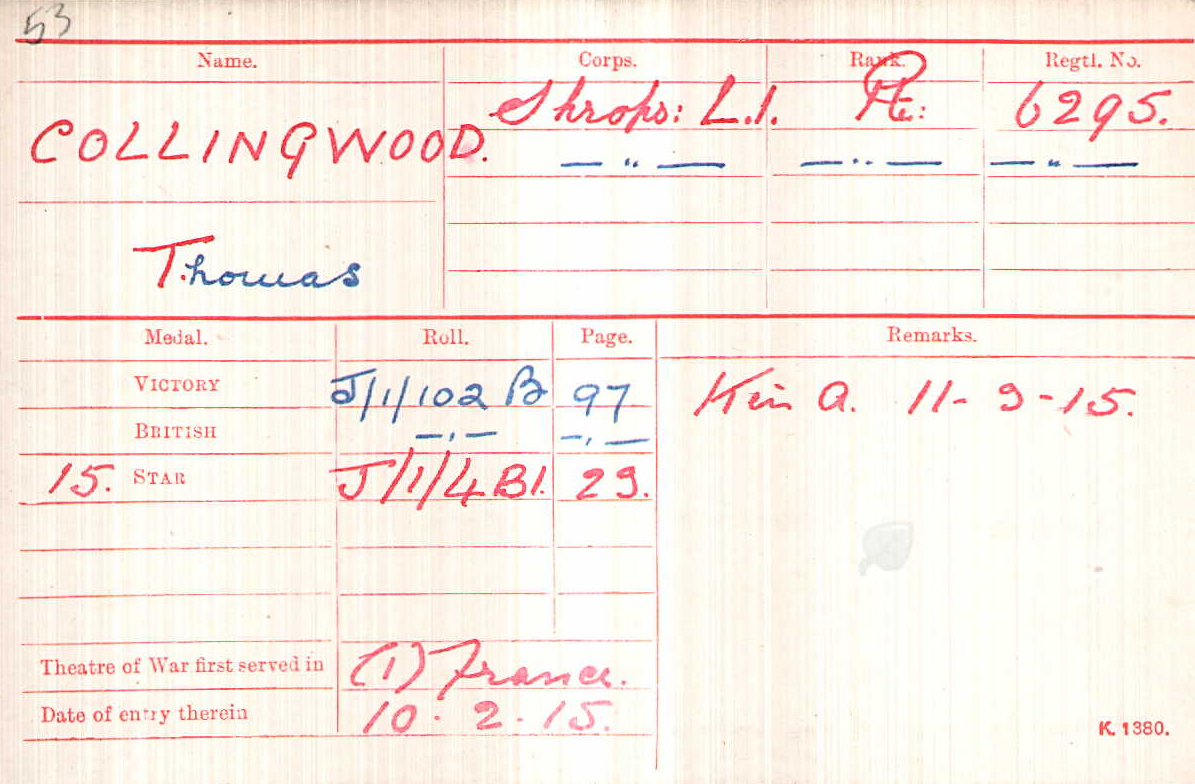 53
Name. Corps. Rank. Regtl. No.
COLLINGWOOD. Shrops: L.I. Pte: 6295.
— " — — " — — " —
Thomas
Medal. Roll. Page. Remarks.
VICTORY J/1/102 B 97 Kin a. 11-3-15.
BRITISH —,— —,—
15. STAR J/1/4 B1. 23.
Theatre of War first served in (1) France.
Date of entry therein 10.2.15.
K. 1380.